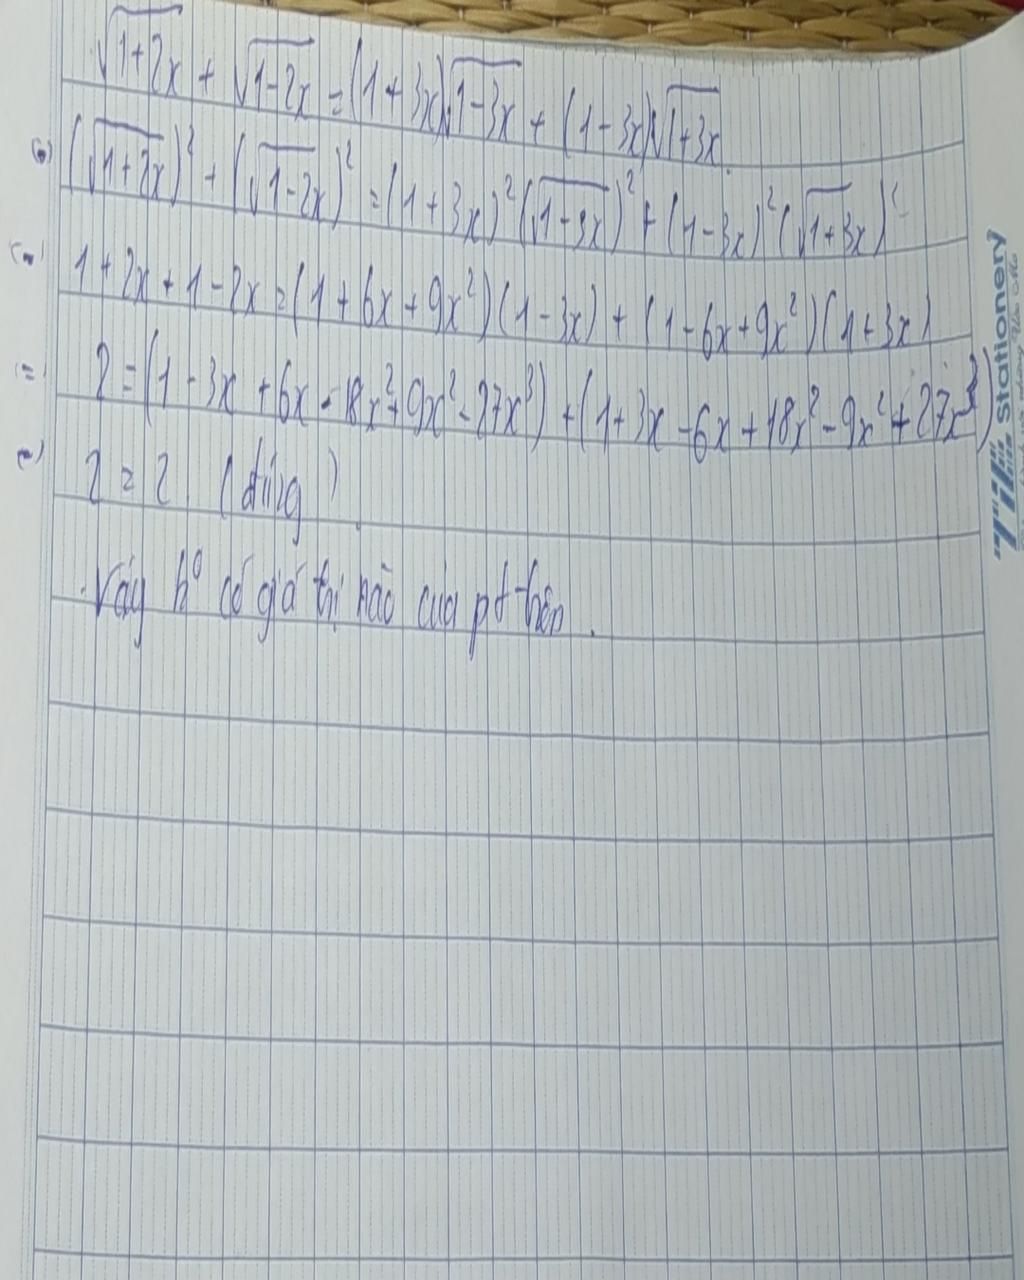 √1+2x + √1-2x = (1+3x)√1-3x + (1-3x)√1+3x
(√1+2x)² + (√1-2x)² = (1+3x)²(√1-3x)² + (1-3x)²(√1+3x)²
1+2x+1-2x = (1+6x+9x²)(1-3x) + (1-6x+9x²)(1+3x)
2 = (1-3x+6x-18x²+9x²-27x³) + (1+3x-6x+18x²-9x²+27x³)
2 = 2 (đúng)
Vậy k⁰ có giá trị nào của pt trên.
Stationery